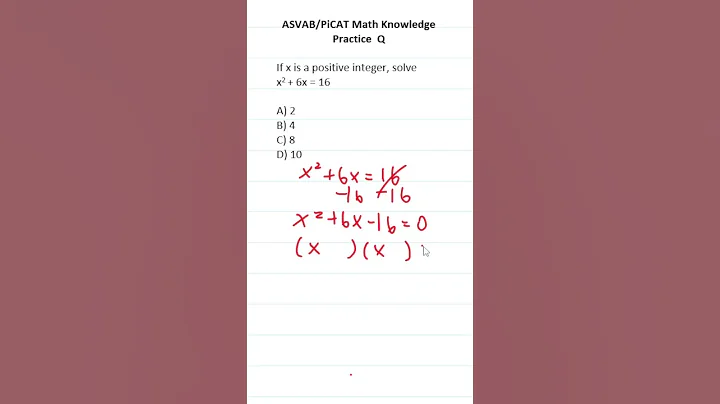 ASVAB/PiCAT Math Knowledge
Practice Q
If x is a positive integer, solve
x² + 6x = 16
A) 2
B) 4
C) 8
D) 10
x² + 6x = 16
-16 -16
x² + 6x - 16 = 0
(x )(x )